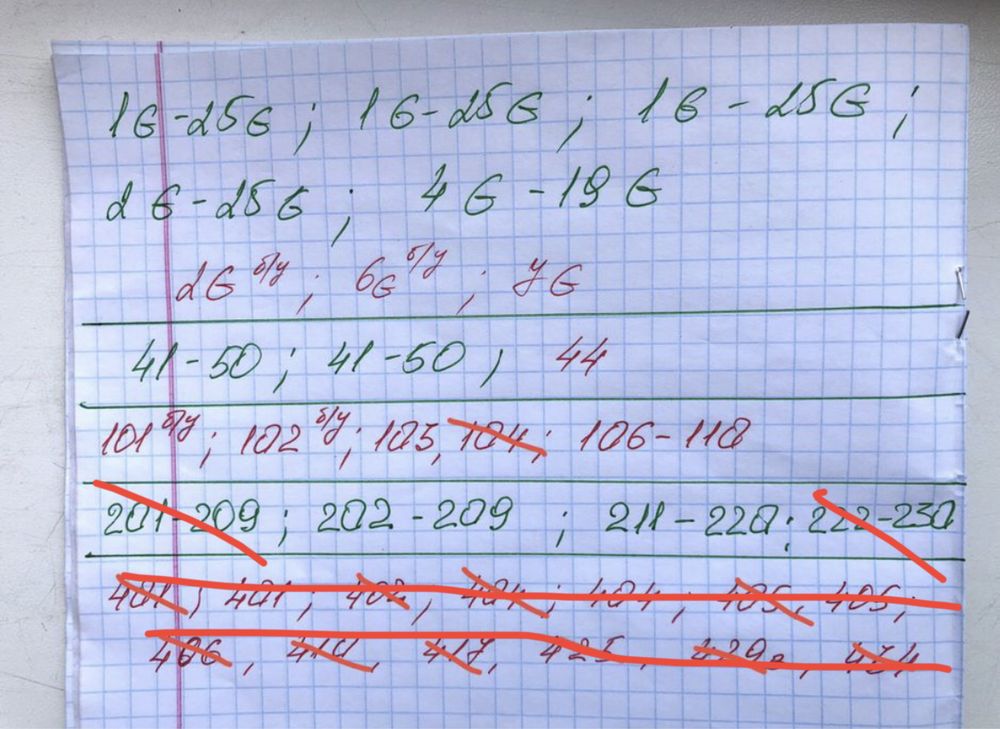 1G-25G; 1G-25G; 1G-25G;
2G-25G; 4G-19G
2G б/у; 6G б/у; 7G
41-50; 41-50; 44
101 б/у; 102 б/у; 103, 104; 106-110
201-209; 202-209; 211-220; 222-230
401; 401; 402, 404; 404; 405, 405;
406, 417, 429а, 434